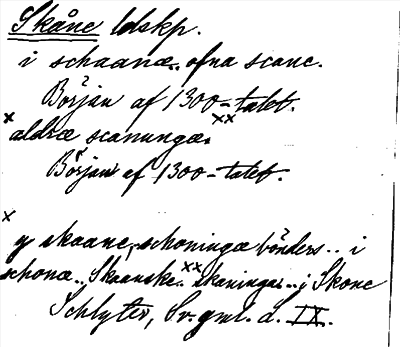 Skåne ldskp.
i schaanæ.. ofna scane.
Början af 1300-talet.
× ××
aldræ scanungæ.
Början af 1300-talet.
×
y skaane, schoningæ bönders.. i
schonæ.. Skaanske.. ×× skaningar.. i Skone
Schlyter, Sv. gml. l. IX.